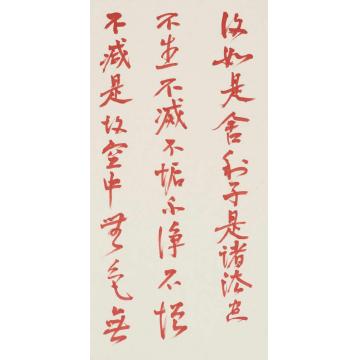 復如是舍利子是諸法空
不生不滅不垢不淨不增
不減是故空中無色無